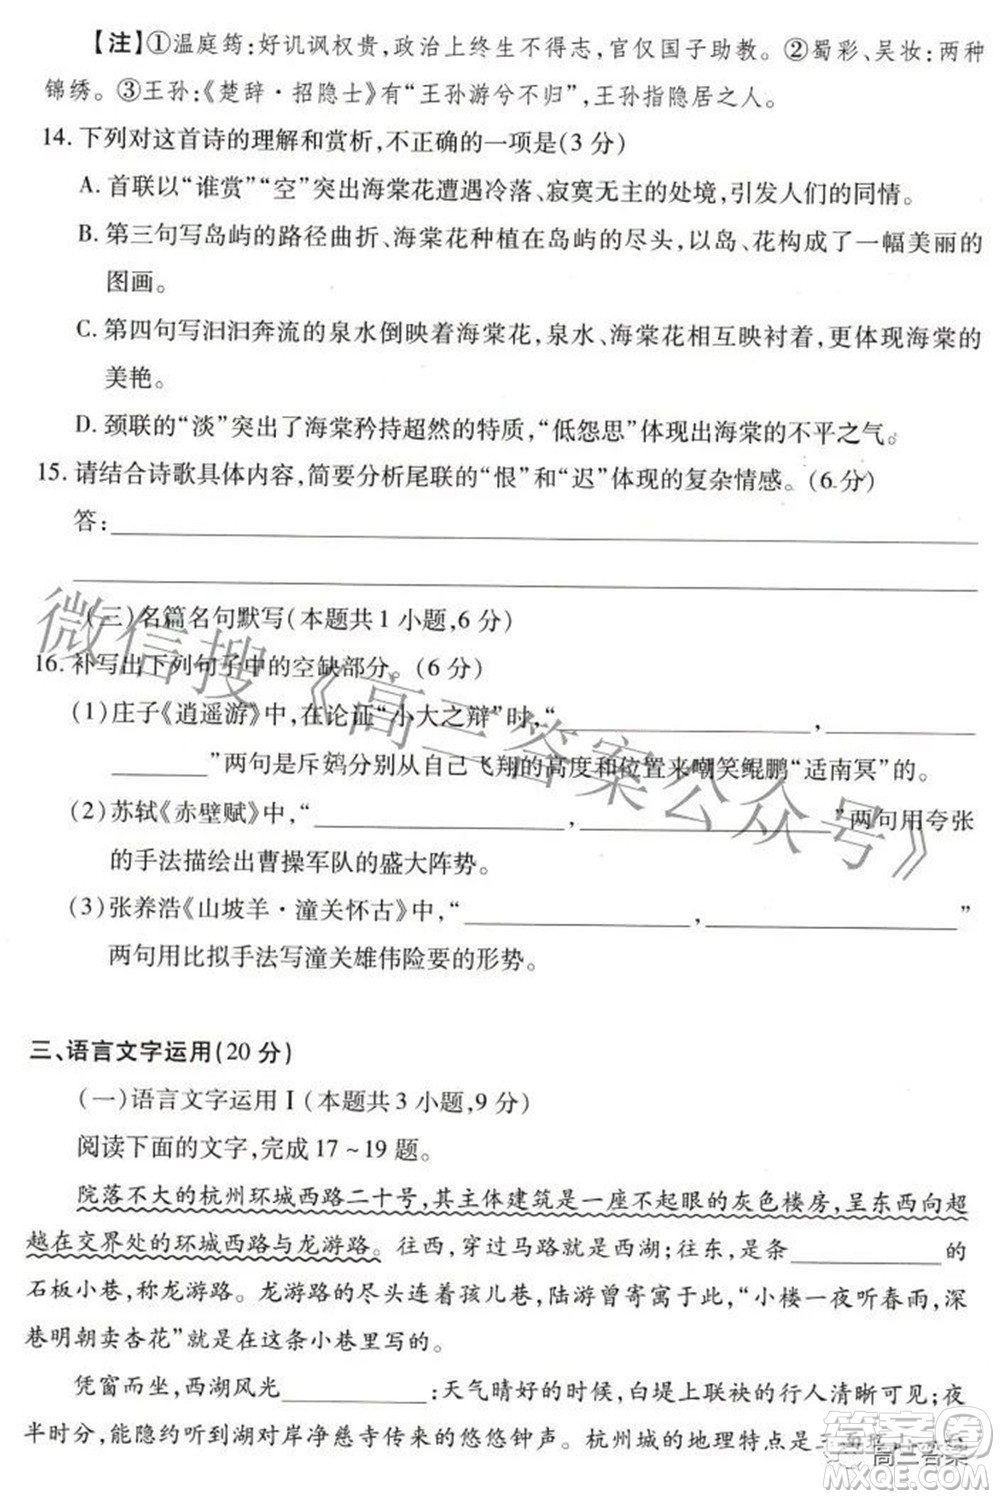 【注】①温庭筠:好讥讽权贵,政治上终生不得志,官仅国子助教。②蜀彩、吴妆:两种
锦绣。③王孙:《楚辞·招隐士》有“王孙游兮不归”,王孙指隐居之人。
14.下列对这首诗的理解和赏析,不正确的一项是(3分)
A.首联以“谁赏”“空”突出海棠花遭遇冷落、寂寞无主的处境,引发人们的同情。
B.第三句写岛屿的路径曲折、海棠花种植在岛屿的尽头,以岛、花构成了一幅美丽的
图画。
C.第四句写汩汩奔流的泉水倒映着海棠花,泉水、海棠花相互映衬着,更体现海棠的
美艳。
D.颈联的“淡”突出了海棠矜持超然的特质,“低怨思”体现出海棠的不平之气。
15.请结合诗歌具体内容,简要分析尾联的“恨”和“迟”体现的复杂情感。(6分)
答:
(三)名篇名句默写(本题共1小题,6分)
16.补写出下列句子中的空缺部分。(6分)
(1)庄子《逍遥游》中,在论证“小大之辩”时,“____________,
____________”两句是斥鹦分别从自己飞翔的高度和位置来嘲笑鲲鹏“适南冥”的。
(2)苏轼《赤壁赋》中,“____________,____________”两句用夸张
的手法描绘出曹操军队的盛大阵势。
(3)张养浩《山坡羊·潼关怀古》中,“____________,____________”
两句用比拟手法写潼关雄伟险要的形势。
三、语言文字运用(20分)
(一)语言文字运用Ⅰ(本题共3小题,9分)
阅读下面的文字,完成17~19题。
院落不大的杭州环城西路二十号,其主体建筑是一座不起眼的灰色楼房,呈东西向超
越在交界处的环城西路与龙游路。往西,穿过马路就是西湖;往东,是条____________的
石板小巷,称龙游路。龙游路的尽头连着孩儿巷,陆游曾寄寓于此,“小楼一夜听春雨,深
巷明朝卖杏花”就是在这条小巷里写的。
凭窗而坐,西湖风光____________:天气晴好的时候,白堤上联袂的行人清晰可见;夜
半时分,能隐约听到湖对岸净慈寺传来的悠悠钟声。杭州城的地理特点是三面
微信搜《高三答案公众号》
答案圈
高三答案
MXQE.COM